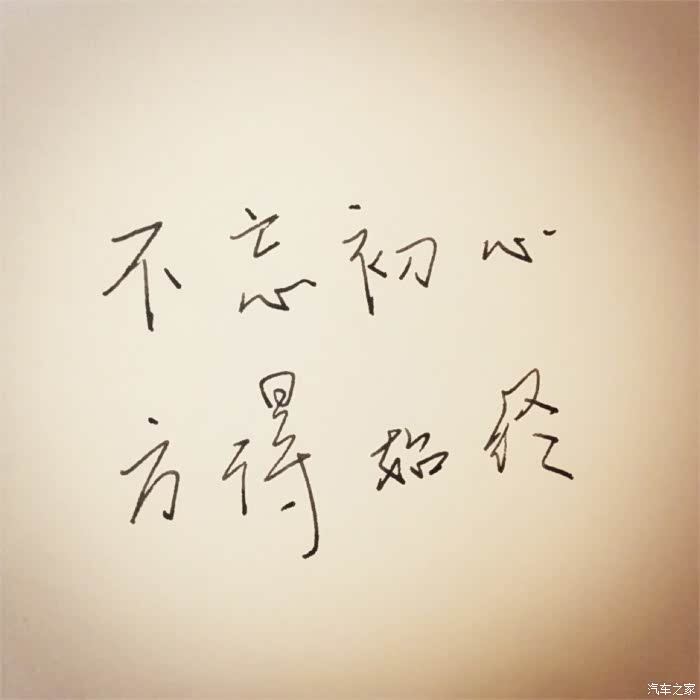 不忘初心
方得始终
汽车之家